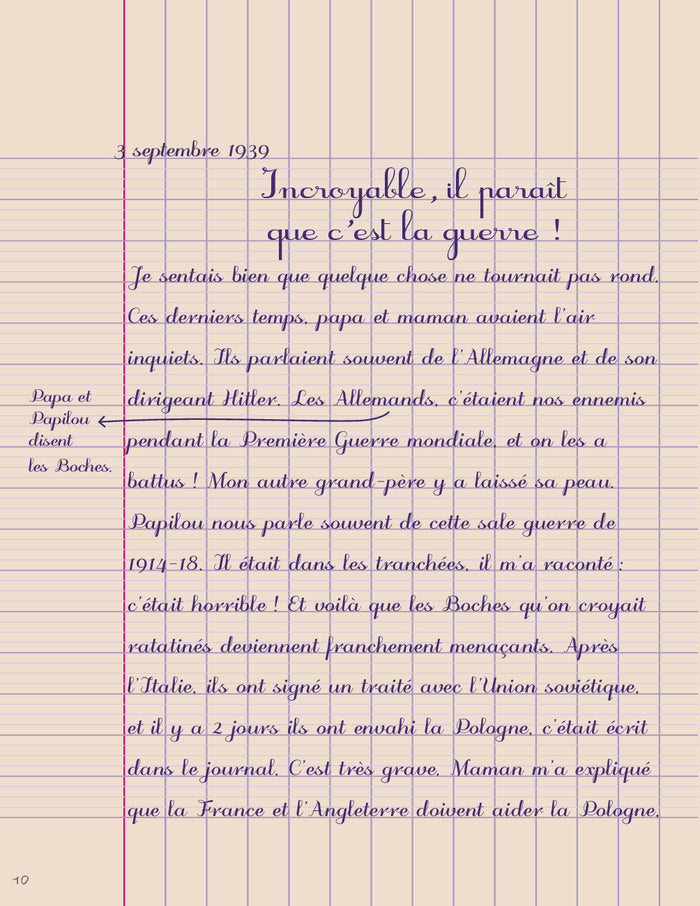 3 septembre 1939
Incroyable, il paraît
que c'est la guerre !
Je sentais bien que quelque chose ne tournait pas rond.
Ces derniers temps, papa et maman avaient l'air
inquiets. Ils parlaient souvent de l'Allemagne et de son
dirigeant Hitler. Les Allemands, c'étaient nos ennemis
pendant la Première Guerre mondiale, et on les a
battus ! Mon autre grand-père y a laissé sa peau.
Papilou nous parle souvent de cette sale guerre de
1914-18. Il était dans les tranchées, il m'a raconté :
c'était horrible ! Et voilà que les Boches qu'on croyait
ratatinés deviennent franchement menaçants. Après
l'Italie, ils ont signé un traité avec l'Union soviétique,
et il y a 2 jours ils ont envahi la Pologne, c'était écrit
dans le journal. C'est très grave. Maman m'a expliqué
que la France et l'Angleterre doivent aider la Pologne,
Papa et
Papilou
disent
les Boches.
10